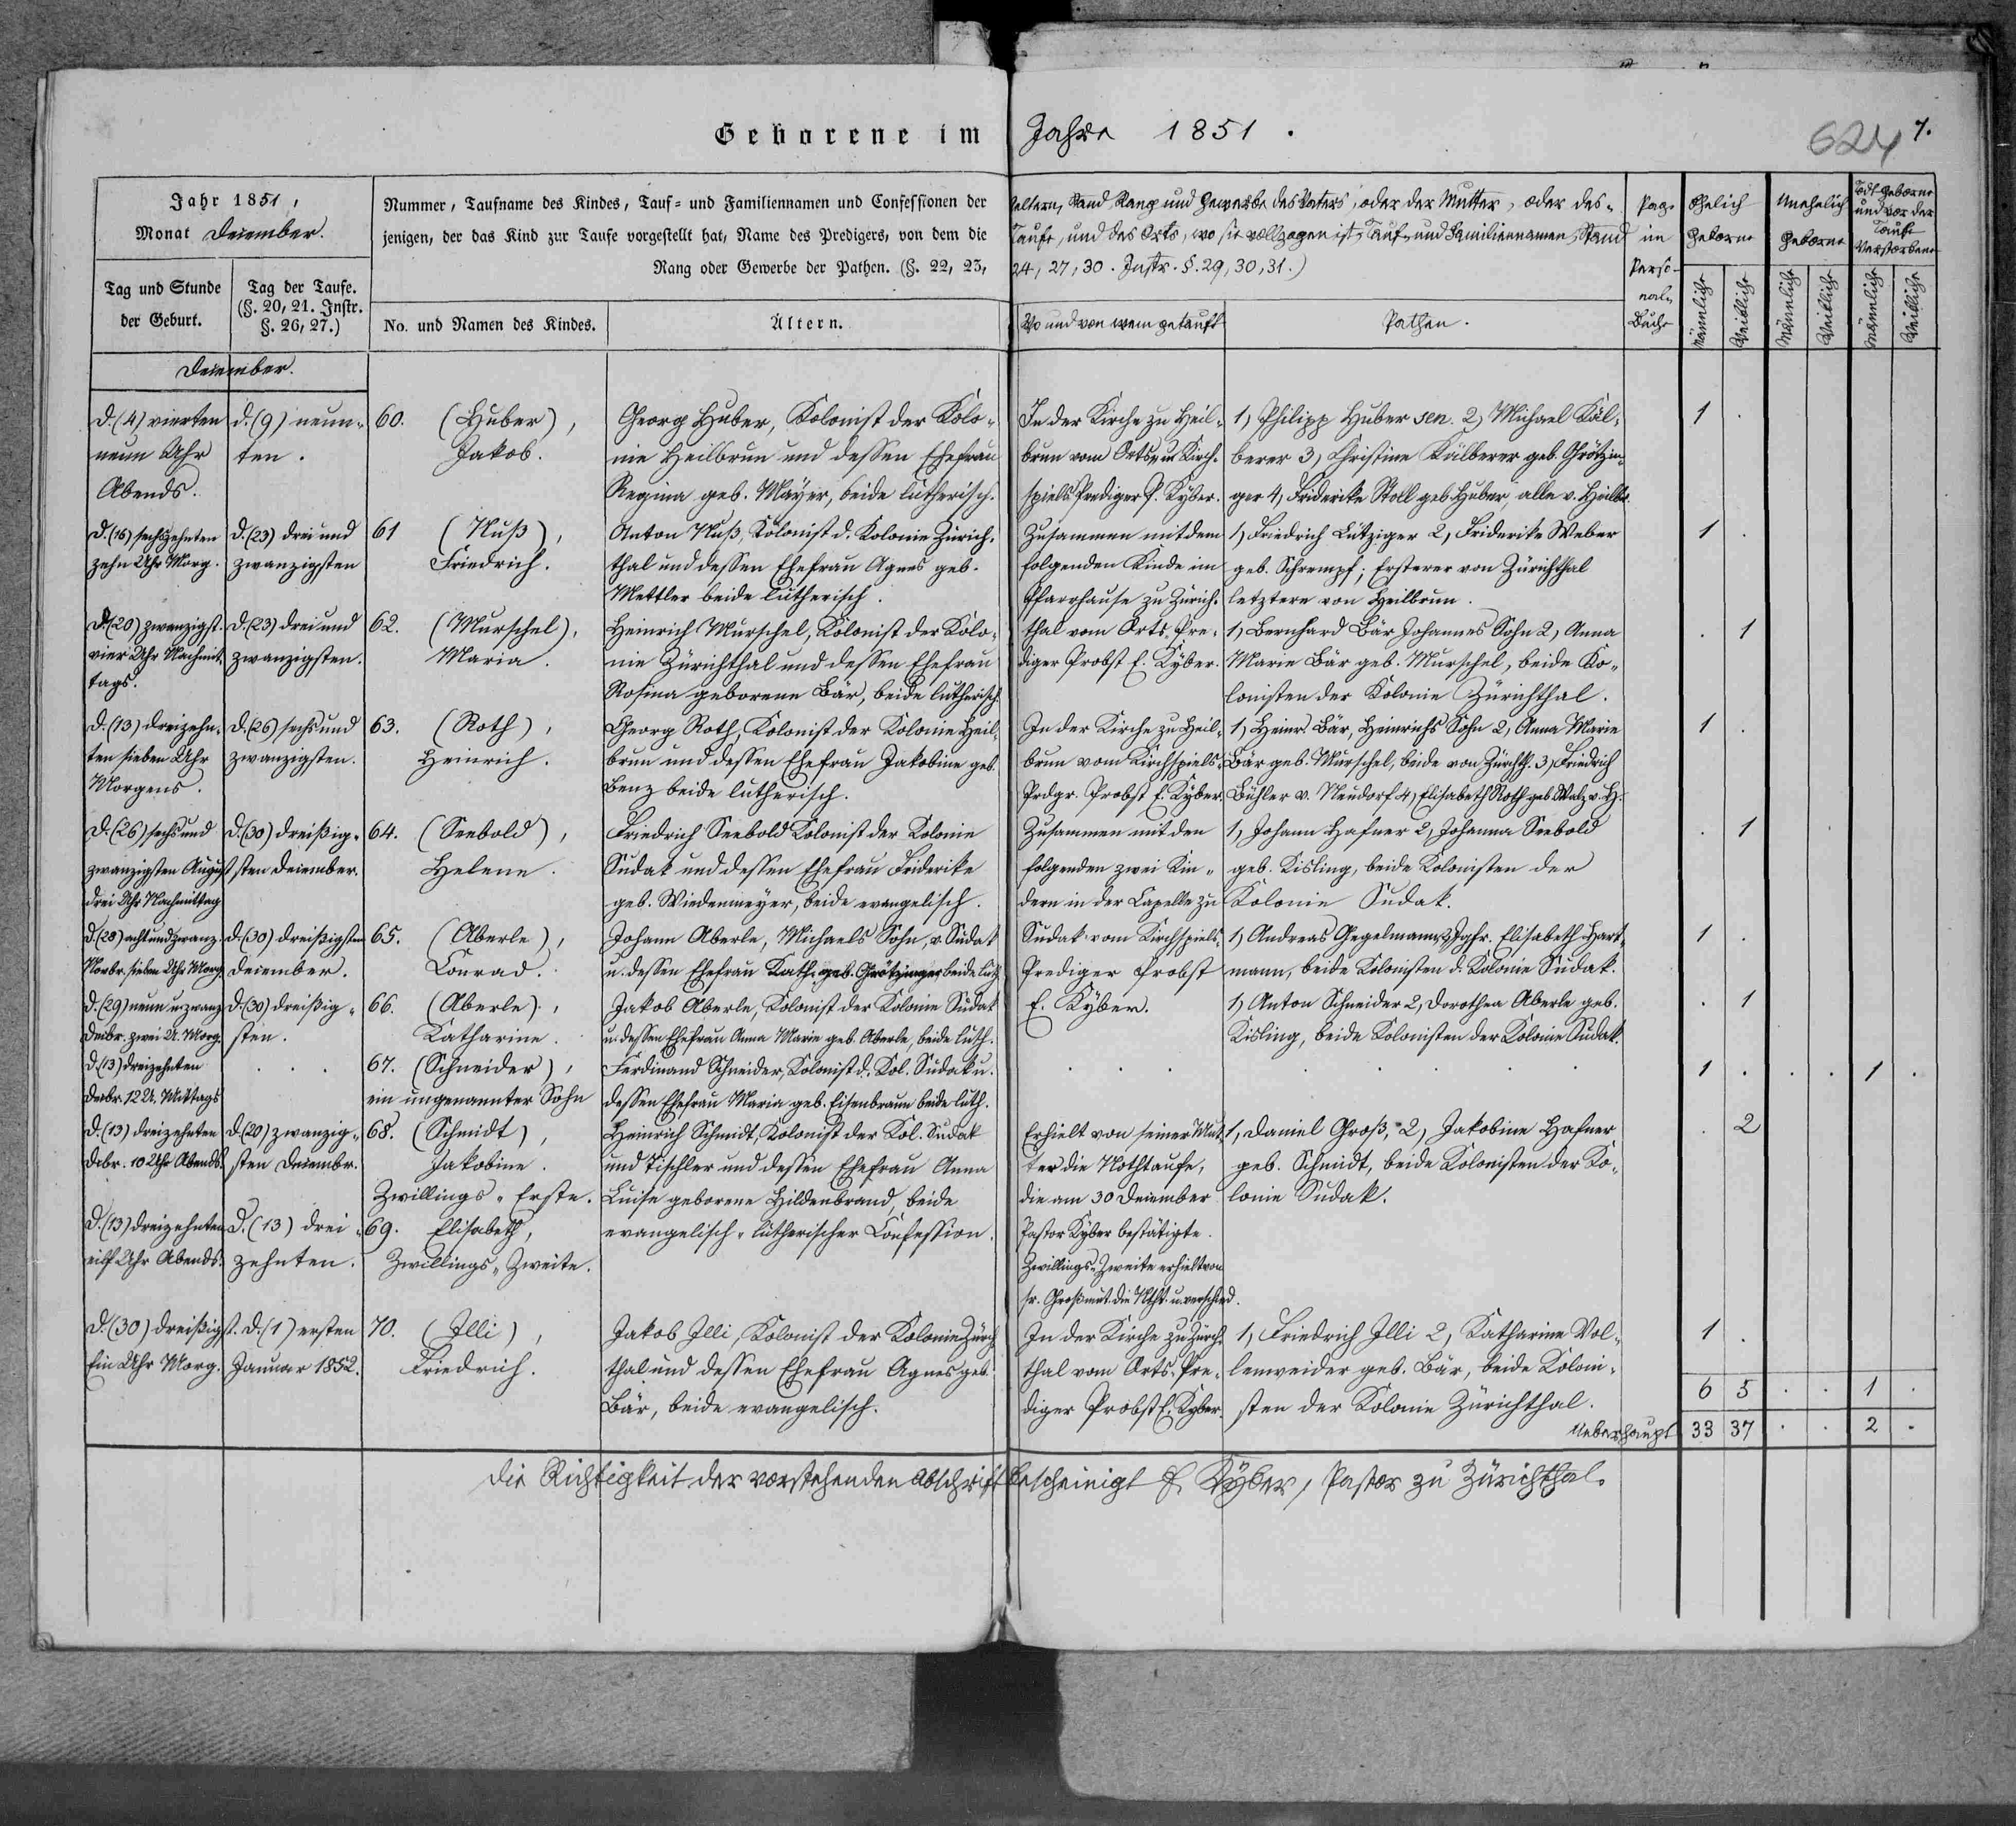 Geborene im Jahre 1851.
624 7.
Jahr 1851,
Monat Dezember.
Tag und Stunde
der Geburt.
Tag der Taufe.
(§. 20, 21. Instr.
§. 26, 27.)
Nummer, Taufname des Kindes, Tauf- und Familiennamen und Confessionen der Aeltern, Stand Rang und Gewerbe des Vaters, oder der Mutter, oder des-
jenigen, der das Kind zur Taufe vorgestellt hat, Name des Predigers, von dem die Taufe, und des Orts, wo sie vollzogen ist, Tauf- und Familiennamen, Stand
Rang oder Gewerbe der Pathen. (§. 22, 23, 24, 27, 30. Instr. §. 29, 30, 31.)
No. und Namen des Kindes.
Ältern.
Wo und von wem getauft
Pathen.
Pag.
im
Perso-
nal-
Buche
Ehelich
Geborne
Unehelich
Geborne
Todt Geborne
und vor der
Taufe
Verstorbene
Männliche
Weibliche
Männliche
Weibliche
Männliche
Weibliche
Dezember.
D. (4) vierten
neun Uhr
Abends.
d. (9) neun-
ten.
60. (Huber),
Jakob.
Georg Huber, Kolonist der Kolo-
nie Heilbrun und dessen Ehefrau
Regina geb. Mäyer, beide lutherisch.
In der Kirche zu Heil-
brun vom Orts- u. Kirch-
spiels Prediger P. Kyber.
1, Philipp Huber sen. 2, Michael Käl-
berer 3, Christine Kälberer geb. Grötzin-
ger 4, Friderike Stoll geb. Huber, alle v. Heilbr.
1 .
D. (16) sechszehnten
zehn Uhr Morg.
D. (23) drei und
zwanzigsten
61 (Nuß),
Friedrich.
Anton Nuß, Kolonist d. Kolonie Zürich-
thal und dessen Ehefrau Agnes geb.
Mettler beide lutherisch.
Zusammen mit dem
folgenden Kinde im
Pfarrhause zu Zürich-
1, Friedrich Lütziger 2, Friderike Weber
geb. Schrempf; Ersterer von Zürichthal
letztere von Heilbrun.
1 .
D. (20) zwanzigst.
vier Uhr Nachmit-
tags.
D. (23) drei und
zwanzigsten.
62. (Murschel),
Maria.
Heinrich Murschel, Kolonist der Kolo-
nie Zürichthal und dessen Ehefrau
Rosina geborene Bär, beide lutherisch
thal vom Orts-Pre-
diger Probst E. Kyber.
1, Bernhard Bär Johannes Sohn 2, Anna
Marie Bär geb. Murschel, beide Ko-
lonisten der Kolonie Zürichthal.
. 1
D. (13) dreizehn-
ten sieben Uhr
Morgens.
D. (26) sechs und
zwanzigsten.
63. (Roth),
Heinrich.
Georg Roth, Kolonist der Kolonie Heil-
brun und dessen Ehefrau Jakobine geb.
Benz beide lutherisch.
In der Kirche zu Heil-
brun vom Kirchspiels-
Prdgr. Probst E. Kyber.
1, Heinr. Bär, Heinrichs Sohn 2, Anna Marie
Bär geb. Murschel, beide von Zürchth. 3, Friedrich
Bühler v. Neudorf 4, Elisabeth Roth geb. Walz v. H.
1 .
D. (26) sechs und
zwanzigsten August
drei Uhr Nachmittag
D. (30) dreißig-
sten Dezember.
64. (Seebold),
Helene.
Friedrich Seebold Kolonist der Kolonie
Sudak und dessen Ehefrau Friderike
geb. Wiedenmeyer, beide evangelisch.
Zusammen mit den
folgenden zwei Kin-
dern in der Capelle zu
1, Johann Hafner 2, Johanna Seebold
geb. Kisling, beide Kolonisten der
Kolonie Sudak.
. 1
D. (28) acht und zwanz.
Novbr. sieben Uhr Morg.
D. (30) dreißigsten
Dezember.
65. (Aberle),
Conrad.
Johann Aberle, Michaels Sohn, v. Sudak
u. dessen Ehefrau Kath. geb. Grötzinger beide luth.
Sudak vom Kirchspiels-
Prediger Probst
1, Andreas Gegelmann 2, Jgfr. Elisabeth Hart-
mann, beide Kolonisten d. Kolonie Sudak.
1 .
D. (29) neun u. zwanz.
Dezbr. zwei U. Morg.
D. (30) dreißig-
sten.
66. (Aberle),
Katharine.
Jakob Aberle, Kolonist der Kolonie Sudak
u. dessen Ehefrau Anna Marie geb. Aberle, beide luth.
E. Kyber.
1, Anton Schneider 2, Dorothea Aberle geb.
Kisling, beide Kolonisten der Kolonie Sudak.
. 1
D. (13) dreizehnten
Dezbr. 12 U. Mittags
67. (Schneider),
ein ungenannter Sohn
Ferdinand Schneider, Kolonist d. Kol. Sudak u.
dessen Ehefrau Maria geb. Eisenbraun beide luth.
1 . . . 1 .
D. (13) dreizehnten
Dzbr. 10 Uhr Abends.
D. (20) zwanzig-
sten Dezember.
68. (Schmidt),
Jakobine.
Zwillings-Erste.
Heinrich Schmidt, Kolonist der Kol. Sudak
und Tischler und dessen Ehefrau Anna
Luise geborene Hildenbrand, beide
evangelisch-lutherischer Confession.
Erhielt von seiner Mut-
ter die Nothtaufe,
die am 30 Dezember
Pastor Kyber bestätigte.
1, Daniel Groß, 2, Jakobine Hafner
geb. Schmidt, beide Kolonisten der Ko-
lonie Sudak.
. 2
D. (13) dreizehnten
eilf Uhr Abends.
D. (13) drei-
zehnten.
69. Elisabeth,
Zwillings-Zweite.
Zwillings-Zweite erhielt von
sr. Großmut. die Ntht. u. verschied.
D. (30) dreißigst.
Ein Uhr Morg.
D. (1) ersten
Januar 1852.
70. (Illi),
Friedrich.
Jakob Illi, Kolonist der Kolonie Zürch
thal und dessen Ehefrau Agnes geb.
Bär, beide evangelisch.
In der Kirche zu Zürch-
thal vom Orts-Pre-
diger Probst E. Kyber.
1, Friedrich Illi 2, Katharine Vol-
lenweider geb. Bär, beide Koloni-
sten der Kolonie Zürichthal.
1 .
6 5 . . 1 .
Ueberhaupt 33 37 . . 2 .
Die Richtigkeit der vorstehenden Abschrift bescheinigt E. Kyber, Pastor zu Zürichthal.